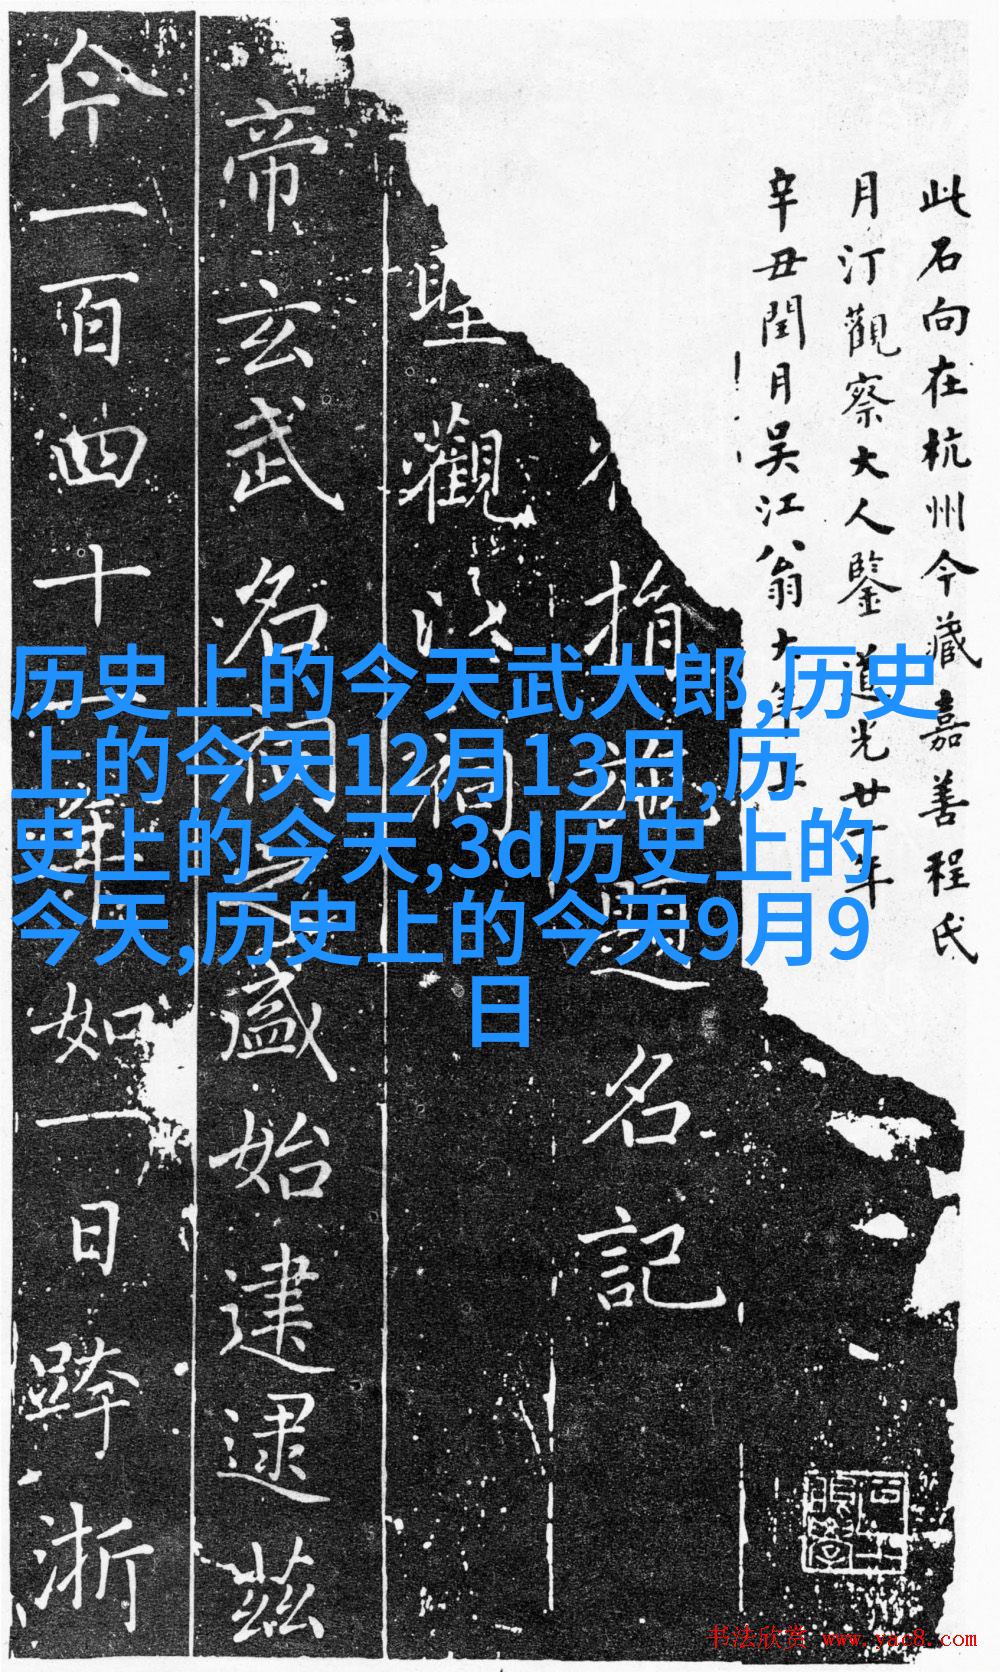 此石向在杭州今藏嘉善程氏
月汀觀察大人鑒道光廿一年
辛丑閏月吳江翁大年上
指施題名記
聖觀
帝玄武名祠之盛始建逮茲
一百四十年如一日蹕浙
历史上的今天武大郎,历史
上的今天12月13日,历
史上的今天,3d历史上的
今天,历史上的今天9月9
日
书法欣赏 www.yac8.com